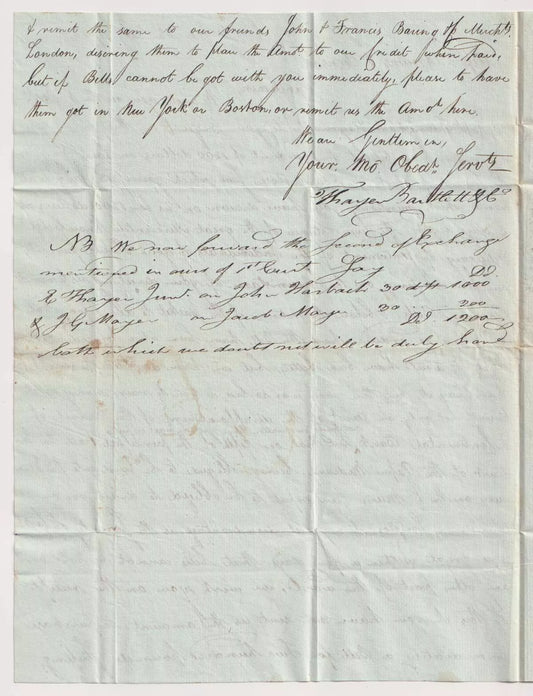 & remit the same to our friends John & Francis Baring & Co Mercht.
London, desiring them to place the Amot. to our Credit when paid,
but if Bills cannot be got with you immediately, please to have
them got in New York or Boston, or remit us the Amot here.
We are Gentlemen,
Your Mo. Obedt. Servts
Thayer Bartlett & Co
NB We now forward the Second of Exchange
mentioned in ours of 1st Curt Say
E Thayer Junr. on John Harback 30 d/s 1000
& J G Mayer on Jacob Mayer 30 200
1200
both which we doubt not will be duly hond